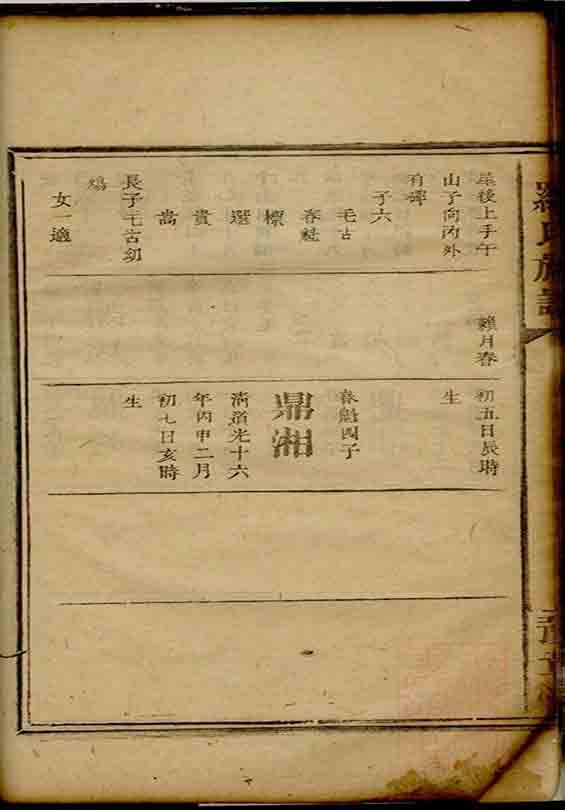 屋後上手午
山子向丙外
有碑
子六
毛古
春魁
標
選
貴
嵩
長子毛古幼
殤
女一適
賴月春
初五日辰時
生
春魁四子
鼎湘
清道光十六
年丙申二月
初七日亥時
生
羅氏族譜